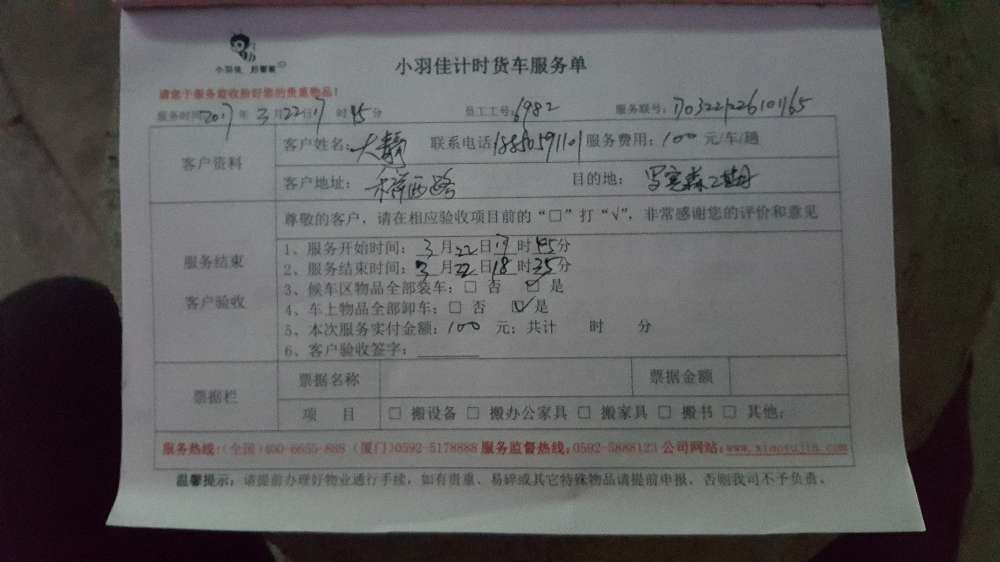 小羽佳
小羽佳计时货车服务单
请您于服务前收拾好您的贵重物品!
服务时间:2017年3月22日17时45分 员工工号:6982 服务联号:
客户资料
客户姓名:大静 联系电话:18850591101 服务费用:100元/车/趟
客户地址: 目的地:
服务结束
客户验收
尊敬的客户,请在相应验收项目前的“□”打“√”,非常感谢您的评价和意见
1、服务开始时间:3月22日17时45分
2、服务结束时间:3月22日18时35分
3、候车区物品全部装车:□ 否 ☑ 是
4、车上物品全部卸车:□ 否 ☑ 是
5、本次服务实付金额:100 元;共计 时 分
6、客户验收签字:
票据栏
票据名称 票据金额
项 目 □ 搬设备 □ 搬办公家具 □ 搬家具 □ 搬书 □ 其他:
服务热线:(全国)400-6655-888 (厦门)0592-5178888 服务监督热线:0592-5888123 公司网站:www.xiaoyujia.com
温馨提示:请提前办理好物业通行手续,如有贵重、易碎或其它特殊物品请提前申报,否则我司不予负责。